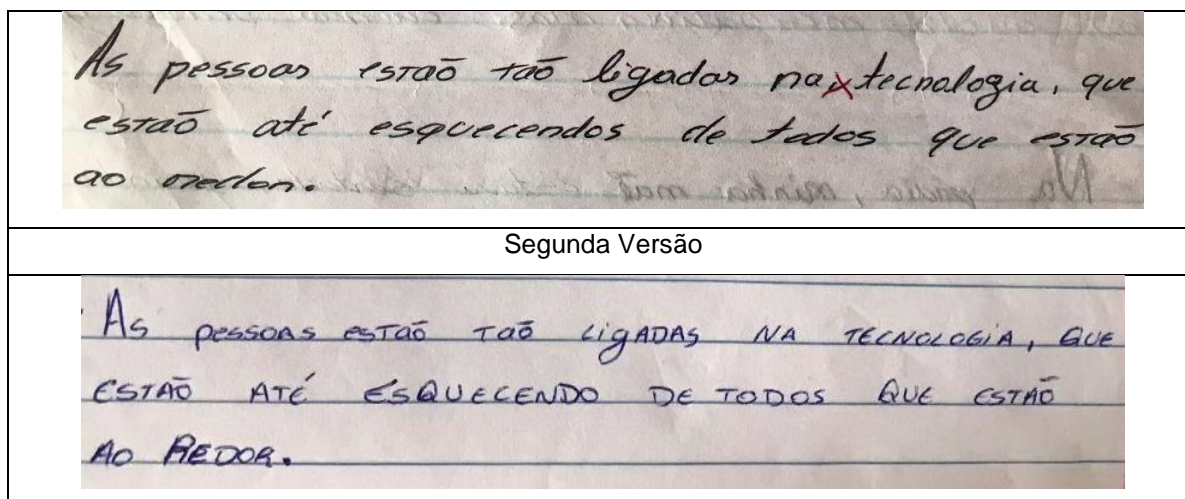 As pessoas estão tão ligadas na tecnologia, que
estão até esquecendos de todos que estão
ao
Segunda Versão
As pessoas estão tão ligadas na tecnologia, que
estão até esquecendo de todos que estão
ao redor.